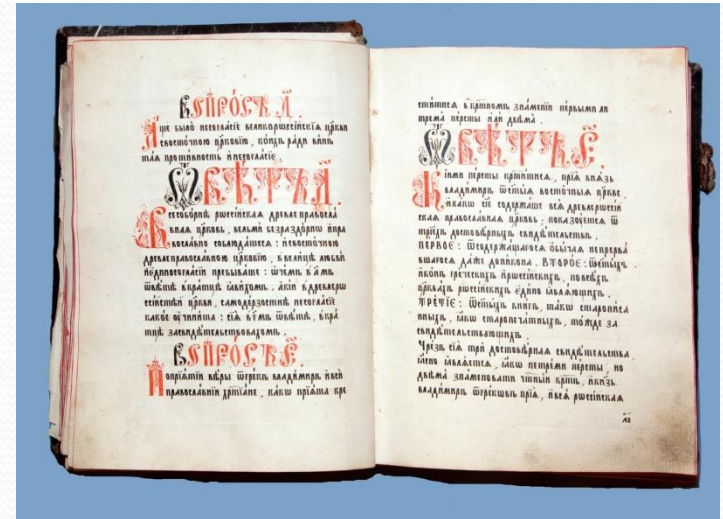 ВОПРО́СЪ Д҃.
А҆́ще было̀ несогла́сїе великорѡссі́йскїѧ цр҃кви
съ восто́чною цр҃ковїю, ко́ихъ ра́ди ви́нъ
таѧ проти́вность и҆ несогла́сїе.
Ѿвѣ́тъ Д҃.
Всесобо́рнѣ рѡссі́йскаѧ дре́внеправосла́
внаѧ цр҃ковь, вельмѝ безраздо́рнѡ и҆ пра
восла́внѡ соблюда́шесѧ: и҆ с восто́чною
древлеправосла́вною цр҃ковїю, в вели́цѣ любвѝ
и҆ є҆диносогла́сїи пребыва́ше: ѡ҆ че́мъ в а҃ мъ
ѿвѣ́тѣ вкра́тцѣ ꙗ҆ви́хомъ. а҆́ки в древлерѡ
ссі́йстѣй цр҃кви, самоде́рзостнѣ несогла́сїе
како́е ᲂу҆чини́ша: сїѧ̑ в є҃ мъ ѿвѣ́тѣ, вкра́
тцѣ засвидѣ́тельствовахомъ.
ВОПРО́СЪ Є҃.
По прїѧ́тїи вѣ́ры ѿ гре́къ влади́миръ и҆ всѝ
правосла́внїи хрⷭ҇тїа́не, ка́кѡ прїѧ́ша кре
сти́тисѧ в крⷭ҇тномъ зна́менїи пе́рвыми ли
тремѧ̀ персты̀ и҆лѝ двѣма̀.
Ѿвѣ́тъ Є҃.
Кі́ими персты̀ крⷭ҇ти́тисѧ, прїѧ̀ кнѧ́зь
влади́миръ ѿ ст҃ы́ѧ восто́чныѧ цр҃кве.
и҆ ка́кѡ сїѐ содержа́ше всѧ̀ древлерѡссі́
скаѧ правосла́внаѧ цр҃ковь; показꙋ́етсѧ ѿ
трїе́хъ достовѣ́рныхъ свидѣ́тельствъ.
ПЕ́РВОЕ: ѿ содержа́щагосѧ ѡ҆бы́чаѧ непрерва́
вшагосѧ да́же до ни́кона. ВТОРО́Е: ѿ ст҃ы́хъ
и҆кѡ́нъ гре́ческихъ и҆ рѡссі́йскихъ, по всѣ́хъ
цр҃квахъ рѡссі́йскихъ є҆ди́но ꙗ҆влѧ́ющихъ.
ТРЕ́ТЇЕ: ѿ ст҃ы́хъ кни́гъ, та́кѡ старопи́са
нныхъ, ꙗ҆́кѡ старопеча́тныхъ, то́жде за
свидѣ́тельствꙋющихъ.
Чрез̾ сїѧ̑ трѝ достовѣ́рнаѧ свидѣ́тельства
ꙗ҆́сно ꙗ҆влѧ́етсѧ, ꙗ҆́кѡ не тремѝ персты̀, но
двѣма̀ зна́меновати че́стный кре́стъ, и҆ кнѧ́зь
влади́миръ ѿ гре́кѡвъ прїѧ̀, и҆ всѧ̀ рѡссі́йскаѧ